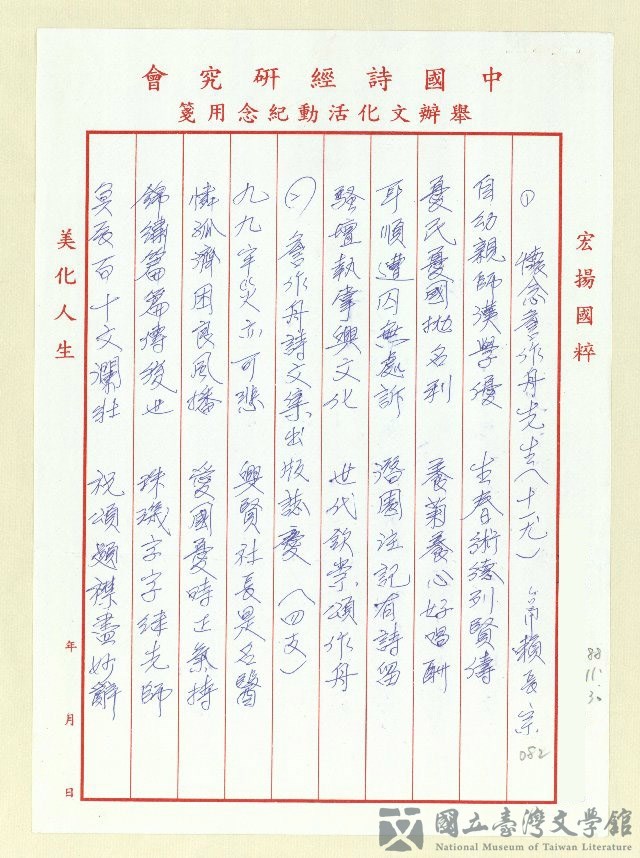 中國詩經研究會
舉辦文化活動紀念用箋
宏揚國粹
① 懷念詹作舟先生(十一尤) 弟賴長宗
自幼親師漢學優 生春術德列賢儔
憂民憂國拋名利 養菊養心好唱酬
耳順遭囚無處訴 潛園注記有詩留
騷壇執掌興文化 世代欽崇頌作舟
㈡ 詹作舟詩文集出版誌慶(四支)
九九牢災亦可悲 興賢社長是名醫
憐孤濟困良風播 愛國憂時正氣持
錦繡篇篇傳後世 珠璣字字繼先師
百十文瀾壯 祝頌 盡妙辭
美化人生
年 月 日
88
11.
30
082
國立臺灣文學館
National Museum of Taiwan Literature